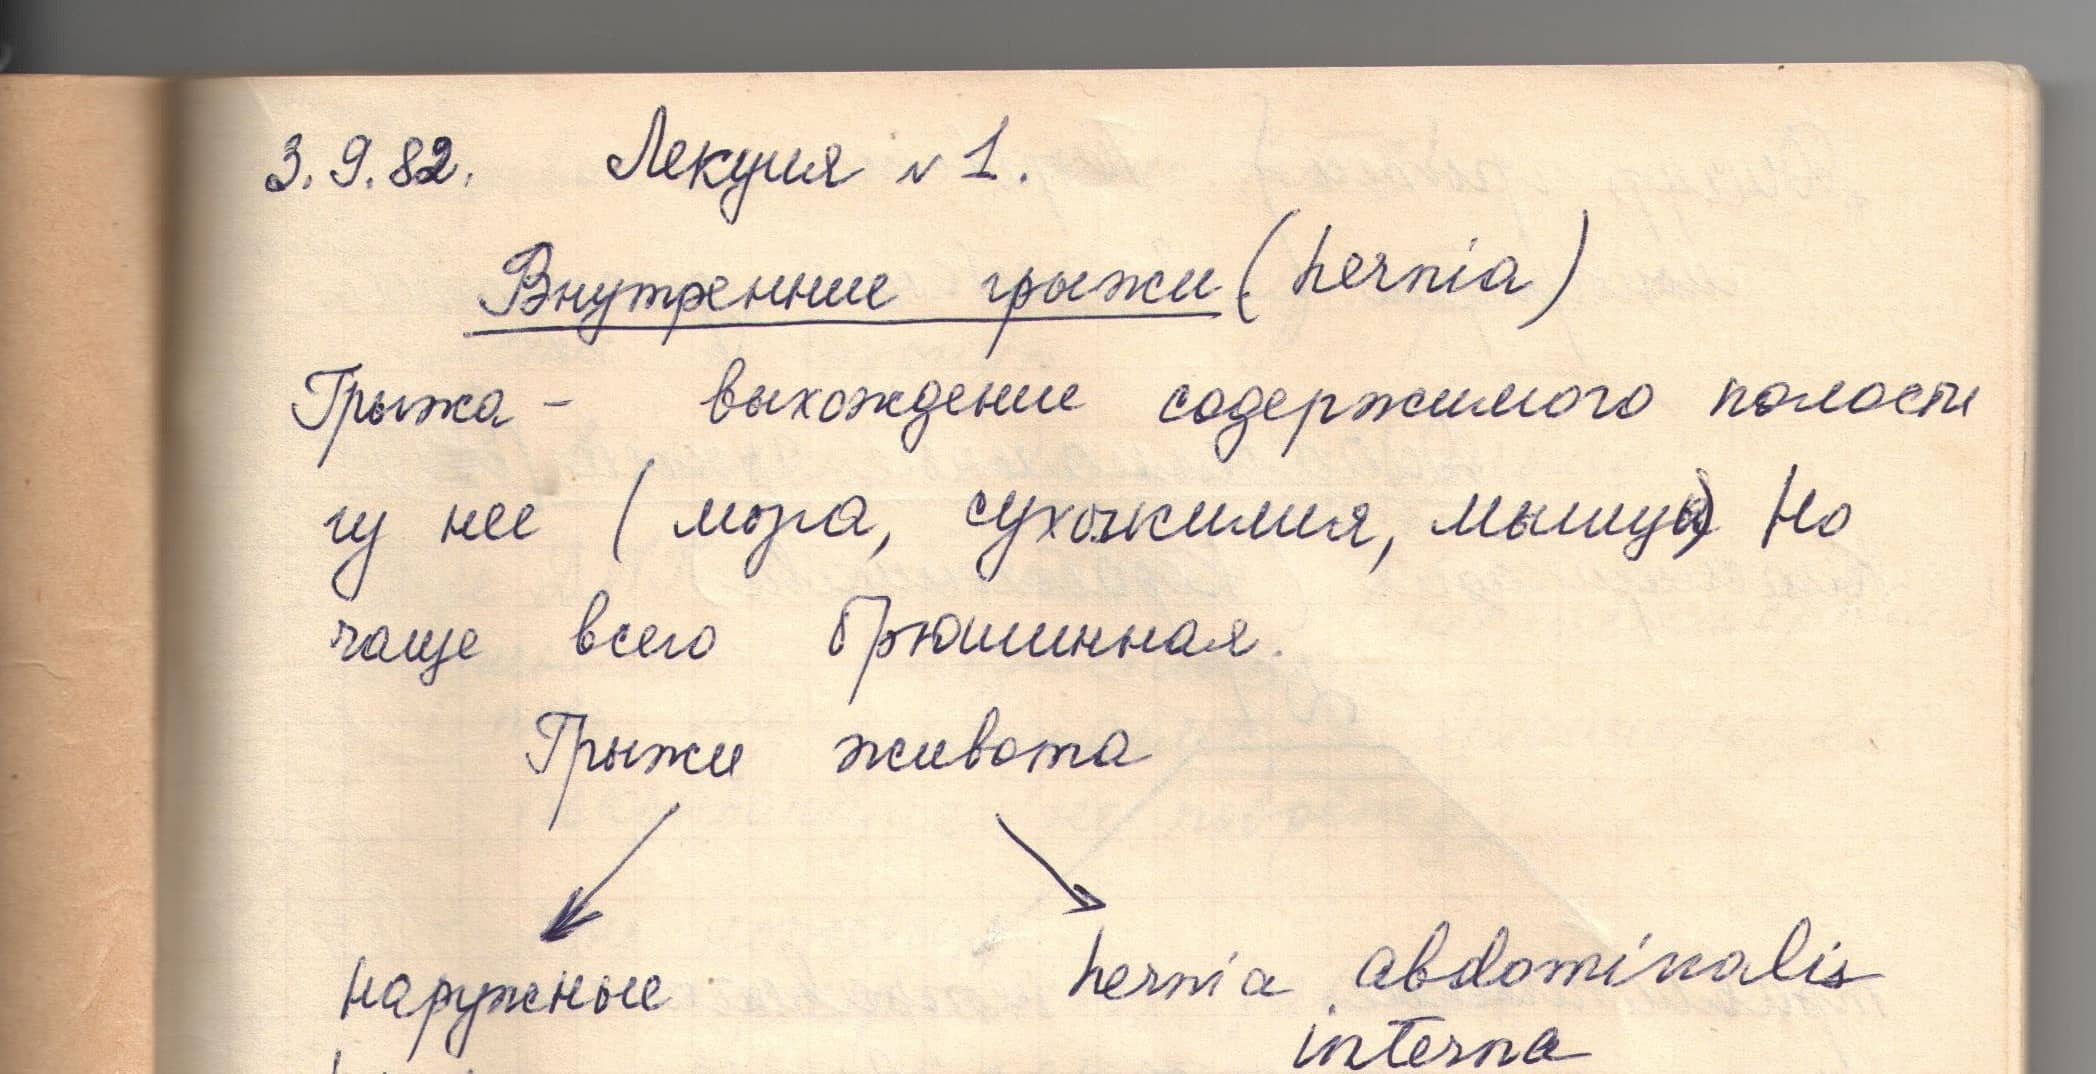 3.9.82. Лекция № 1.
Внутренние грыжи (hernia)
Грыжа - выхождение содержимого полости
из нее (мозга, сухожилия, мышцы) Но
чаще всего брюшинная.
Грыжи живота
наружные hernia abdominalis
interna